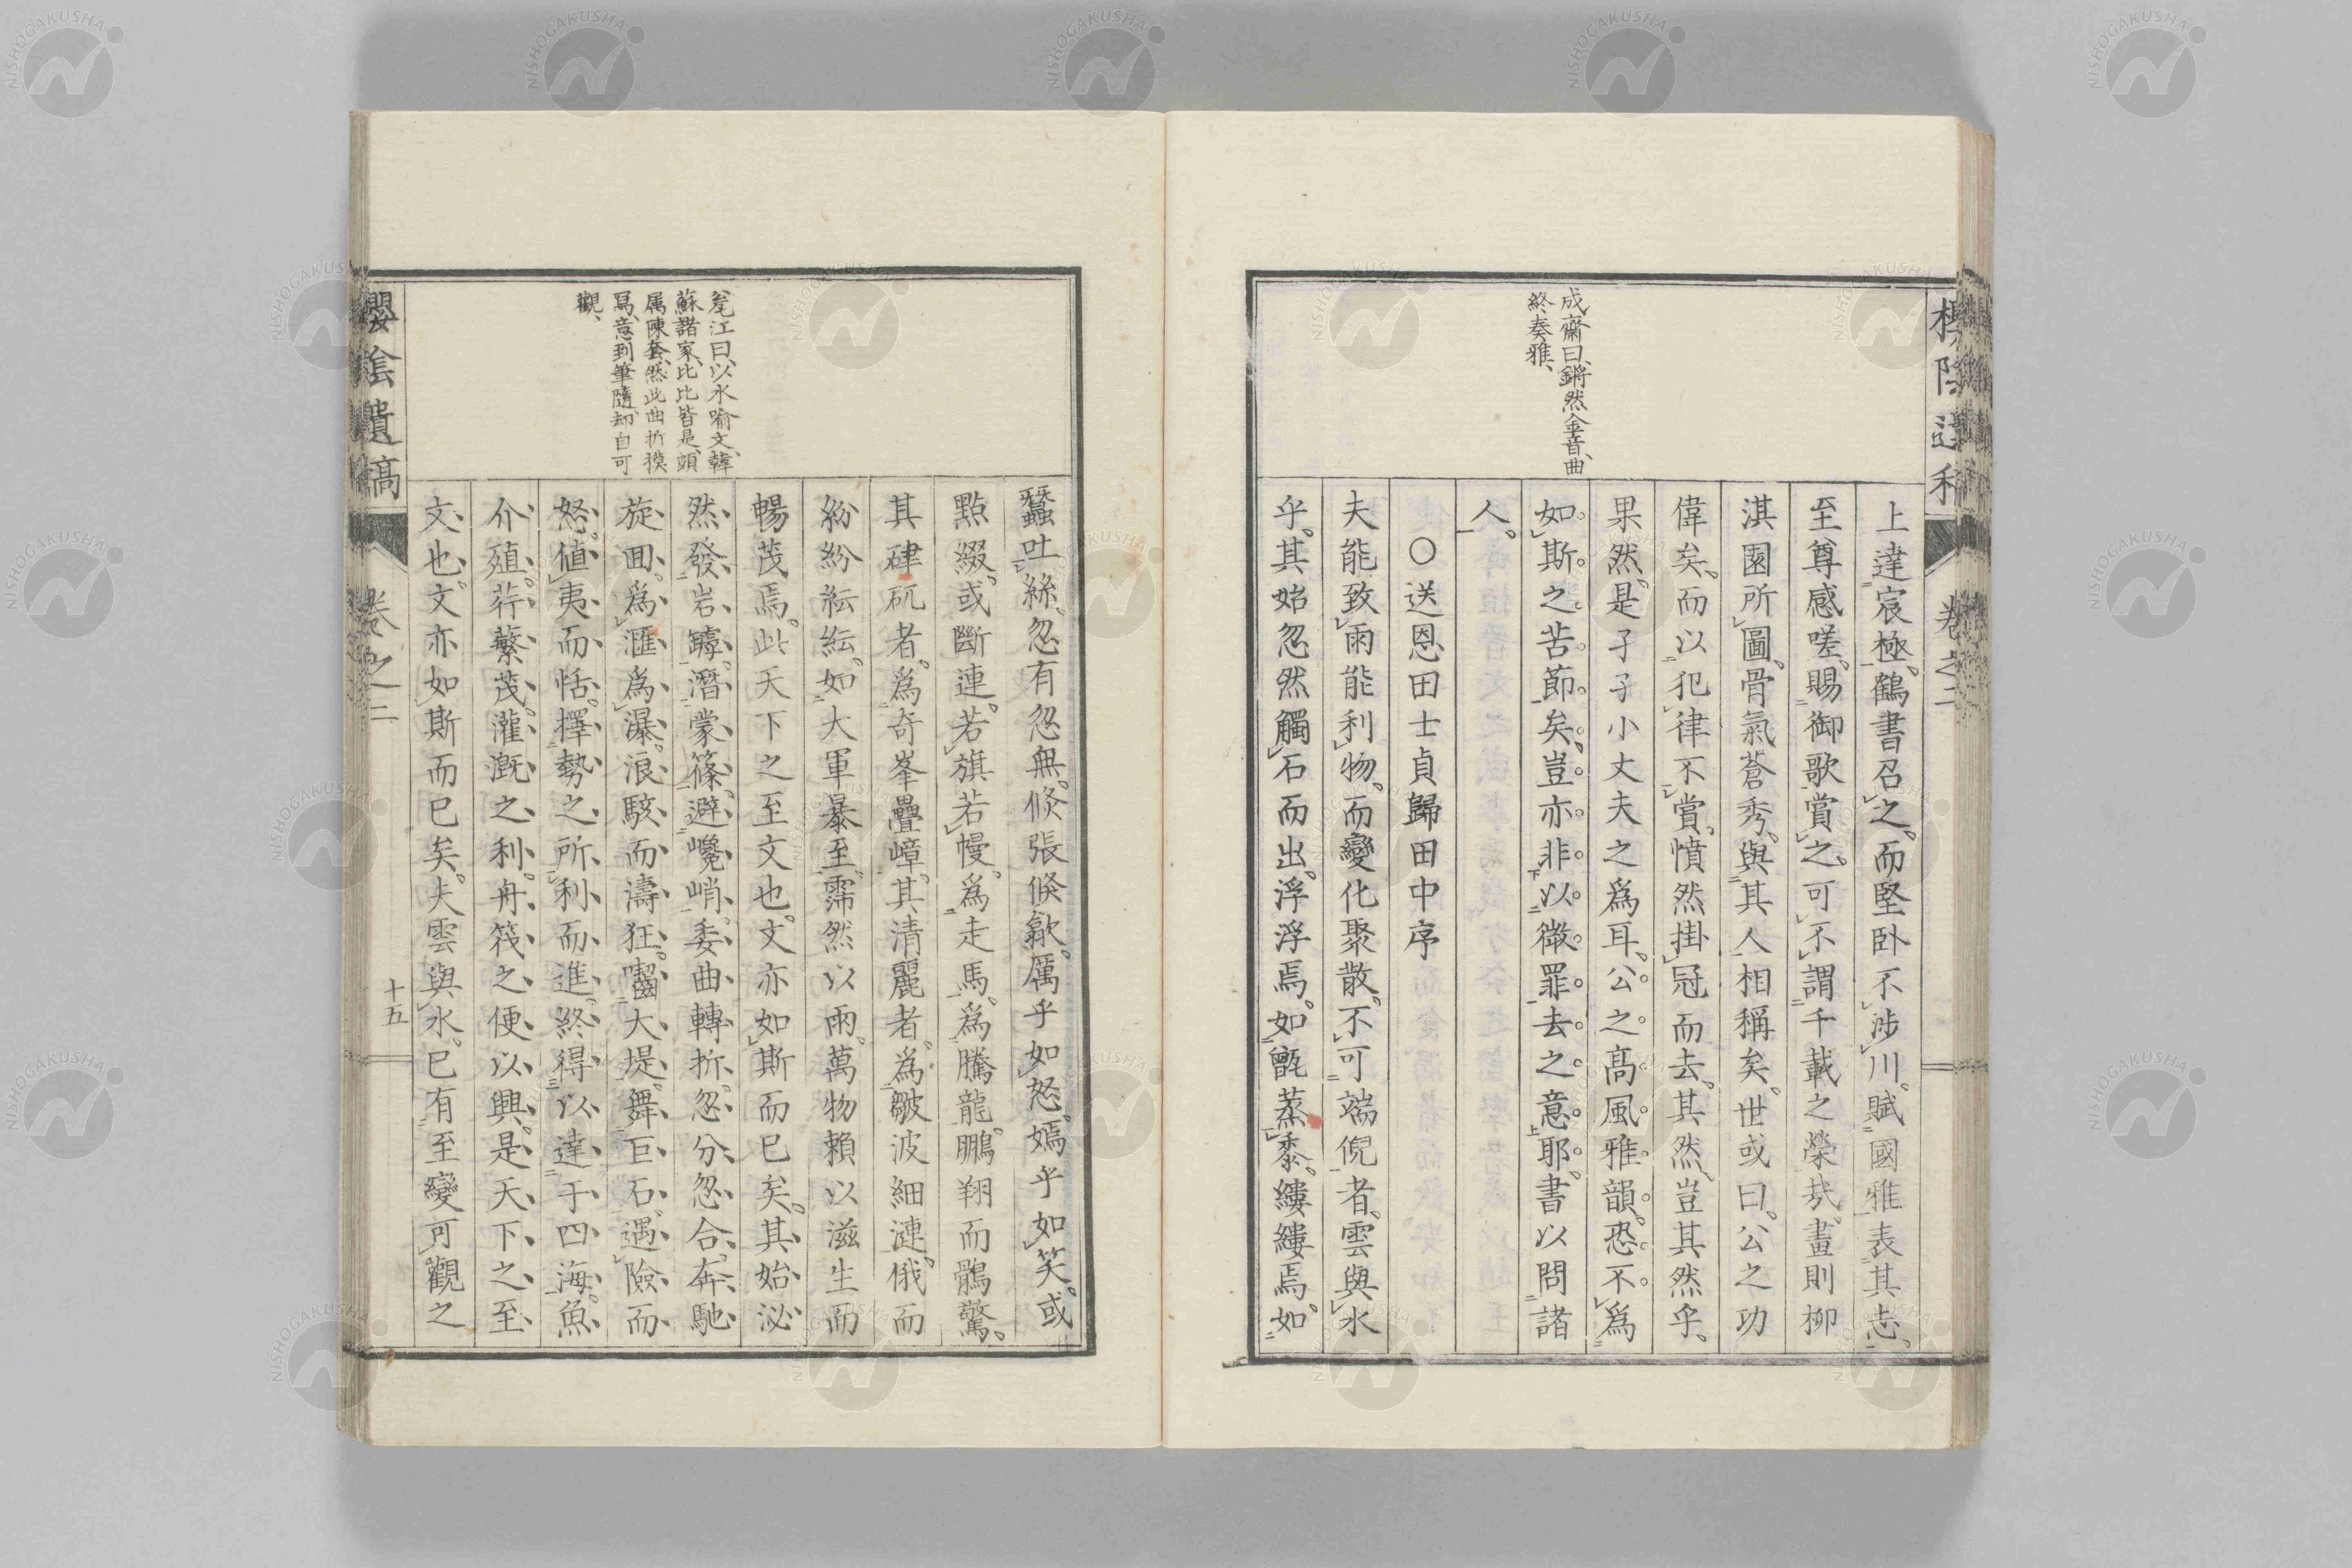 成齋曰、鏘然金音、曲
終奏雅、
上達宸極。鶴書召之、而堅卧不渉川。賦國雅表其志、
至尊感嗟、賜御歌賞之。可不謂千載之榮哉。畫則柳
淇園所圖、骨氣蒼秀、與其人相稱矣。世或曰。公之功
偉矣、而以犯律不賞、憤然掛冠而去、其然、豈其然乎、
果然、是孑孑小丈夫之爲耳、公之髙風雅韻。恐不爲
如斯之苦節矣、豈亦非以徴罪去之意耶、書以問諸
人。
○送恩田士貞歸田中序
夫能致雨能利物、而變化聚散、不可端倪者。雲與水
乎。其始忽然觸石而出。浮浮焉。如甑蒸黍。縷縷焉。如
卷之二
蠶吐絲。忽有忽無。倏張倏歙。厲乎如怒。嫣乎如笑。或
點綴。或斷連。若旗若幔。爲走馬。爲騰龍。鵬翔而鶻驚。
其硉矹者。爲奇峯疊嶂。其清麗者。爲皺波細漣。俄而
紛紛紜紜。如大軍暴至。霈然以雨。萬物賴以滋生而
暢茂焉。此天下之至文也。文亦如斯而已矣。其始泌
然發岩罅。潛蒙篠。避巉峭。委曲轉折。忽分忽合。奔馳
旋囬。爲滙爲瀑。浪駭而濤狂。囓大堤。舞巨石。遇險而
怒。値夷而恬。擇勢之所利而進。終得以達于四海。魚
介殖。荇蘩茂。灌漑之利。舟筏之便以興。是天下之至
文也。文亦如斯而已矣。夫雲與水。已有至變可觀之
寃江曰、以水喻文、韓
蘇諸家、比比皆是、頗
属陳套、然此曲折摸
冩、意到筆隨、却自可
觀、
櫻陰遺稿
卷之二
十五